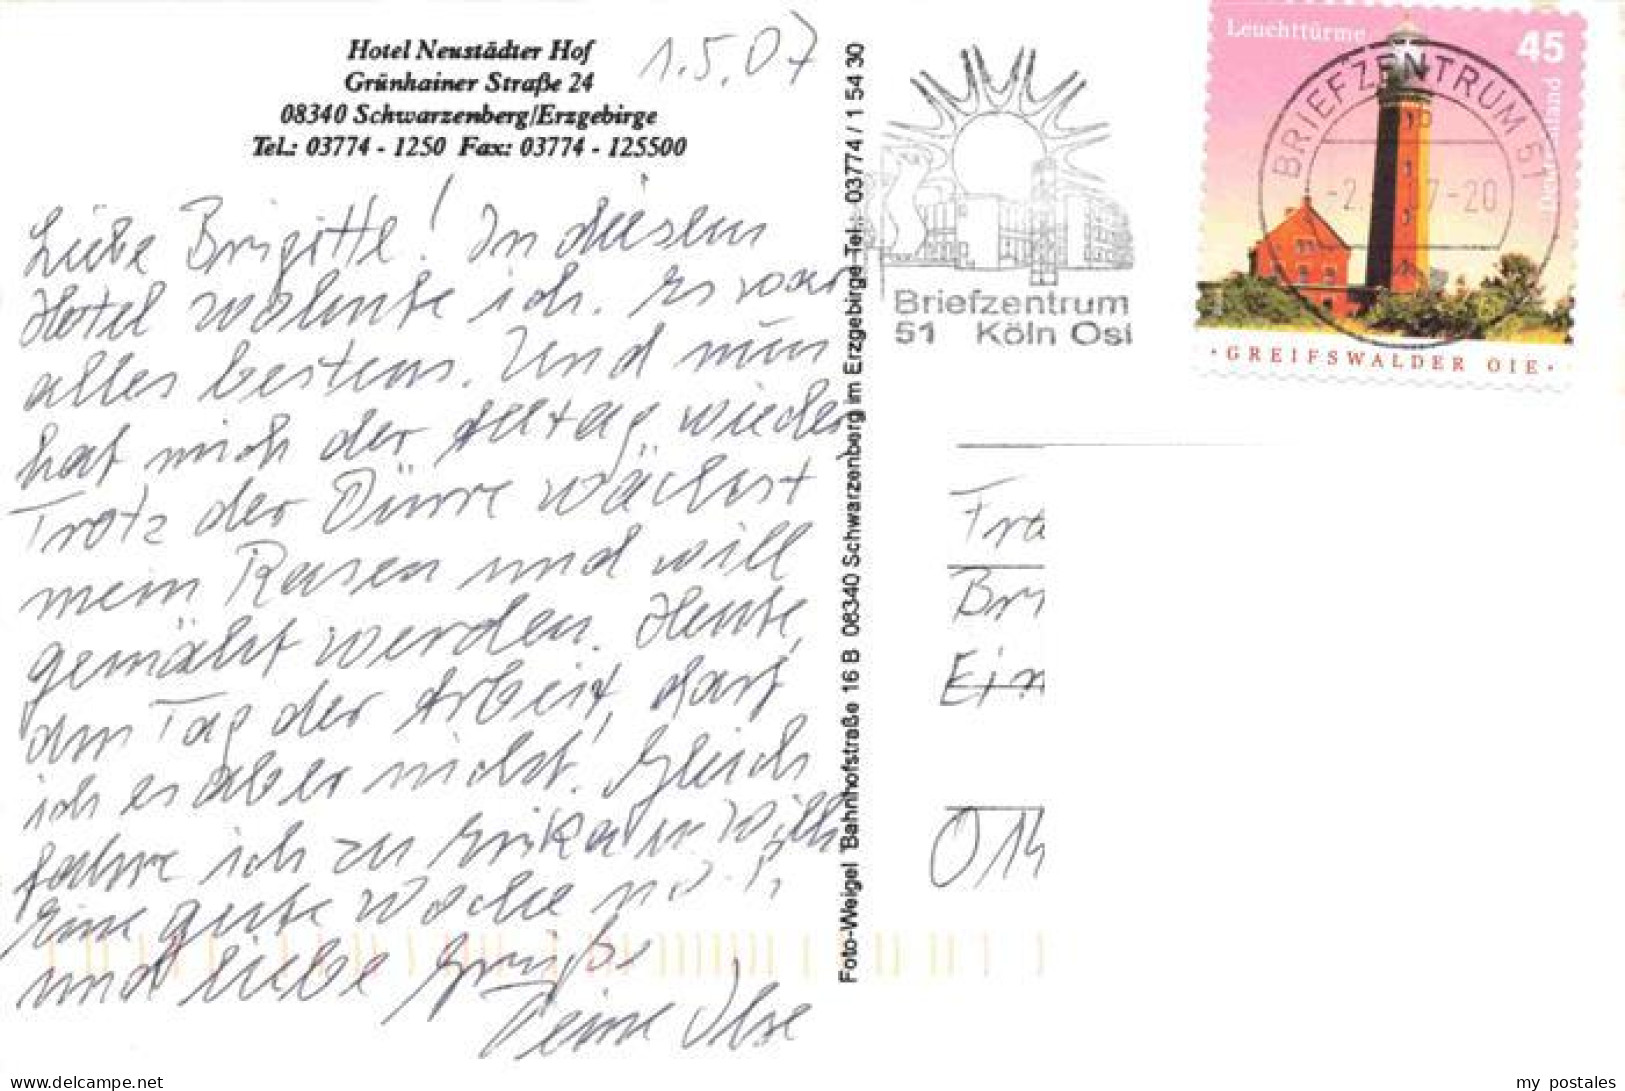 Hotel Neustädter Hof
Grünhainer Straße 24
08340 Schwarzenberg/Erzgebirge
Tel.: 03774 - 1250 Fax: 03774 - 125500
1.5.07
Liebe Brigitte! In diesem
Hotel wohnte ich. Es war
alles bestens. Und nun
hat mich der Alltag wieder
Trotz der Dürre wächst
mein Rasen und will
gemäht werden. Heute,
am Tag der Arbeit, darf
ich es aber nicht. Gleich
fahre ich zu Erika u. Willi
Eine gute Woche
und liebe Grüße
Deine Ilse
Foto-Weigel Bahnhofstraße 16 B 08340 Schwarzenberg im Erzgebirge Tel.: 03774 / 1 54 30
Briefzentrum
51 Köln Ost
Leuchttürme
45
Deutschland
BRIEFZENTRUM 51
-2. 7-20
· GREIFSWALDER OIE ·
Fra
Bri
Ein
014
my_postales
© www.delcampe.net